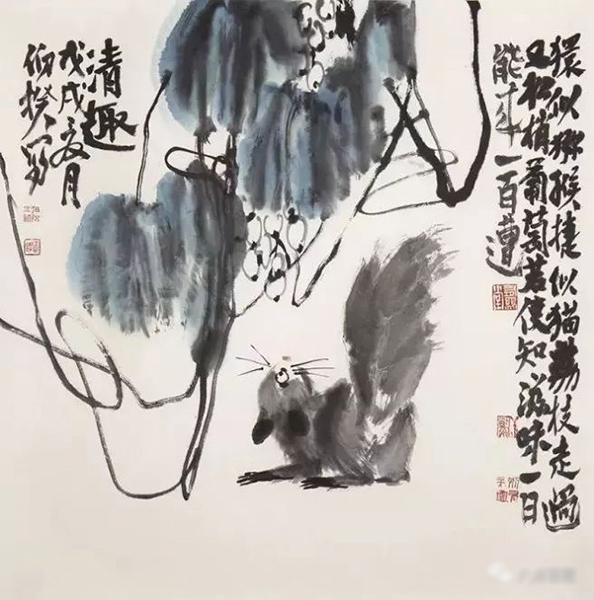 獧似猕猴捷似猫荔枝走過
又松梢葡萄若使知滋味一日
能来一百遭
清趣
戊戌夏月
伯揆写